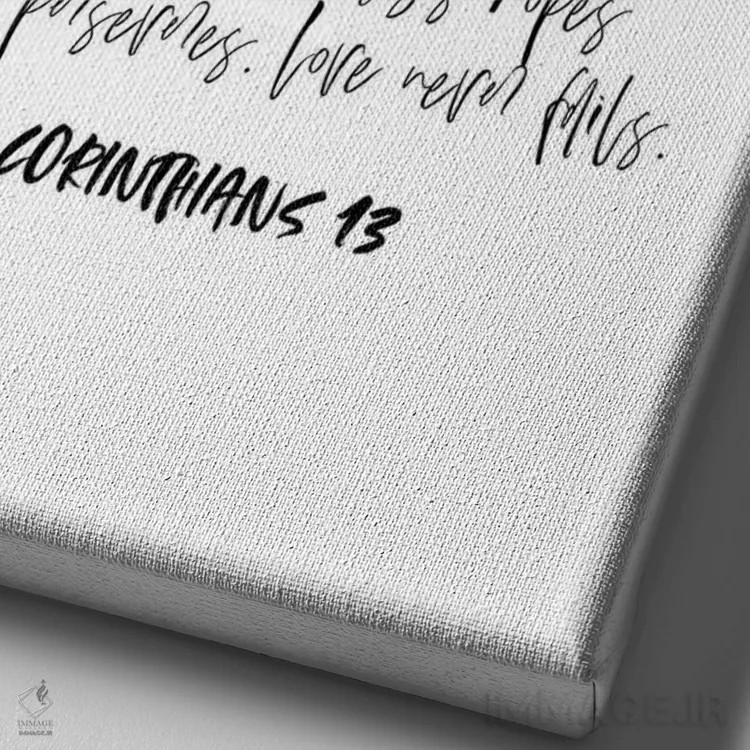 hopes
perseveres. Love never fails.
CORINTHIANS 13
IMMAGE
IMMAGE.IR
IMMAGE.IR